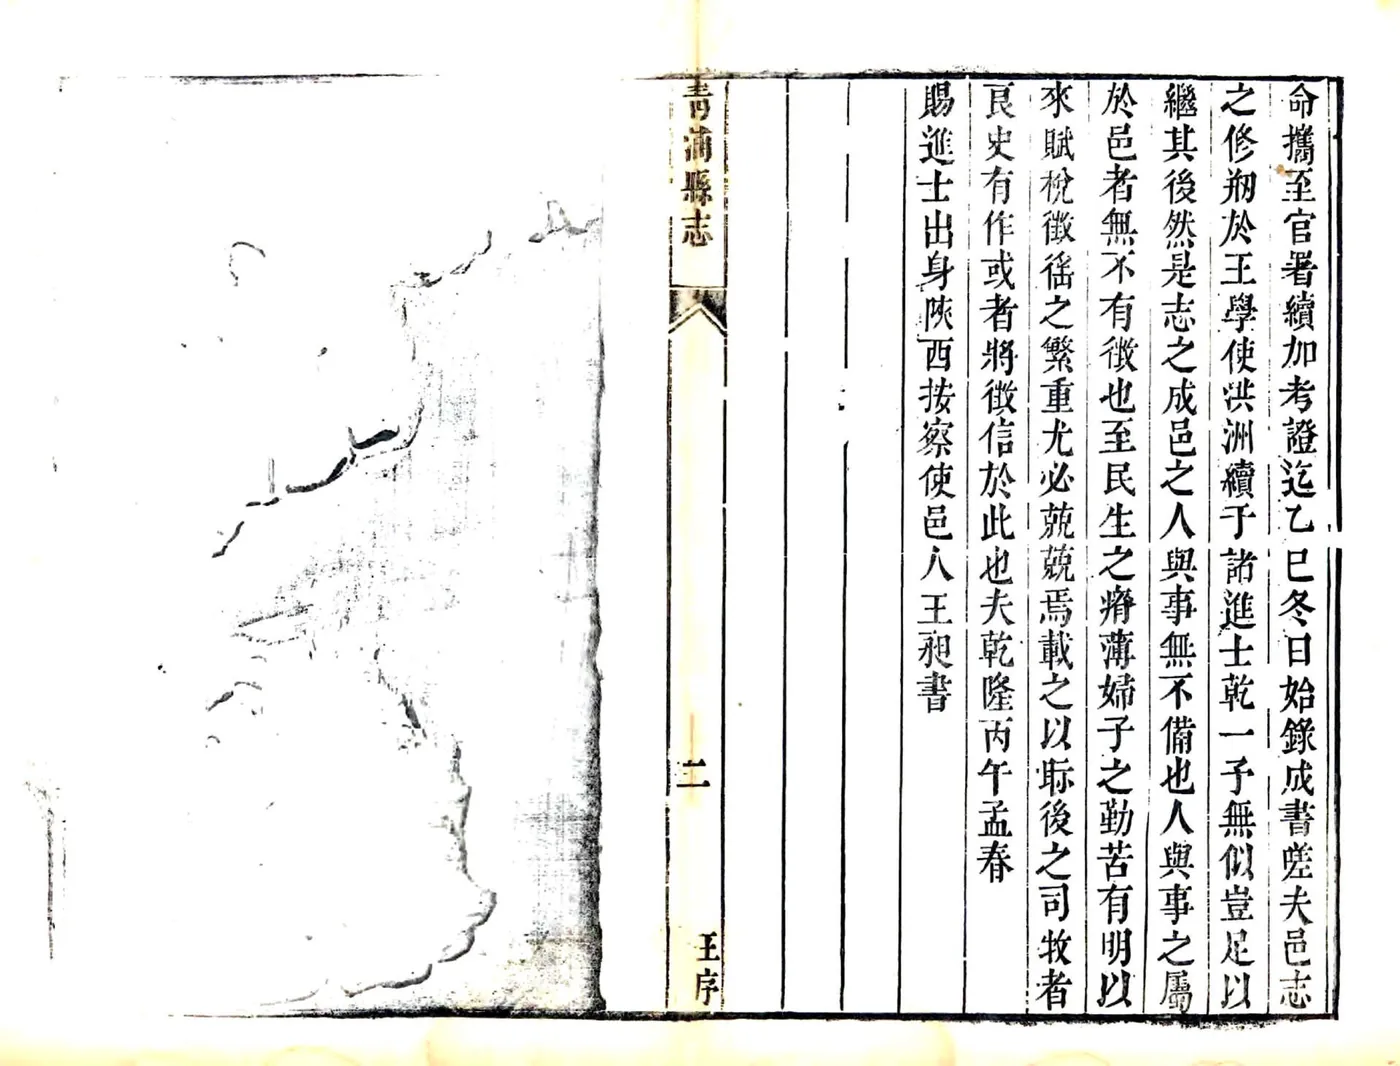 命攜至官署續加考證迄乙巳冬日始錄成書嗟夫邑志
之修刱於王學使洪洲續于諸進士乾一予無似豈足以
繼其後然是志之成邑之人與事無不備也人與事之屬
於邑者無不有徵也至民生之瘠薄婦子之勤苦有明以
來賦稅徵徭之繁重尤必兢兢焉載之以眎後之司牧者
良史有作或者將徵信於此也夫乾隆丙午孟春
賜進士出身陝西按察使邑人王昶書
青浦縣志
二
王序